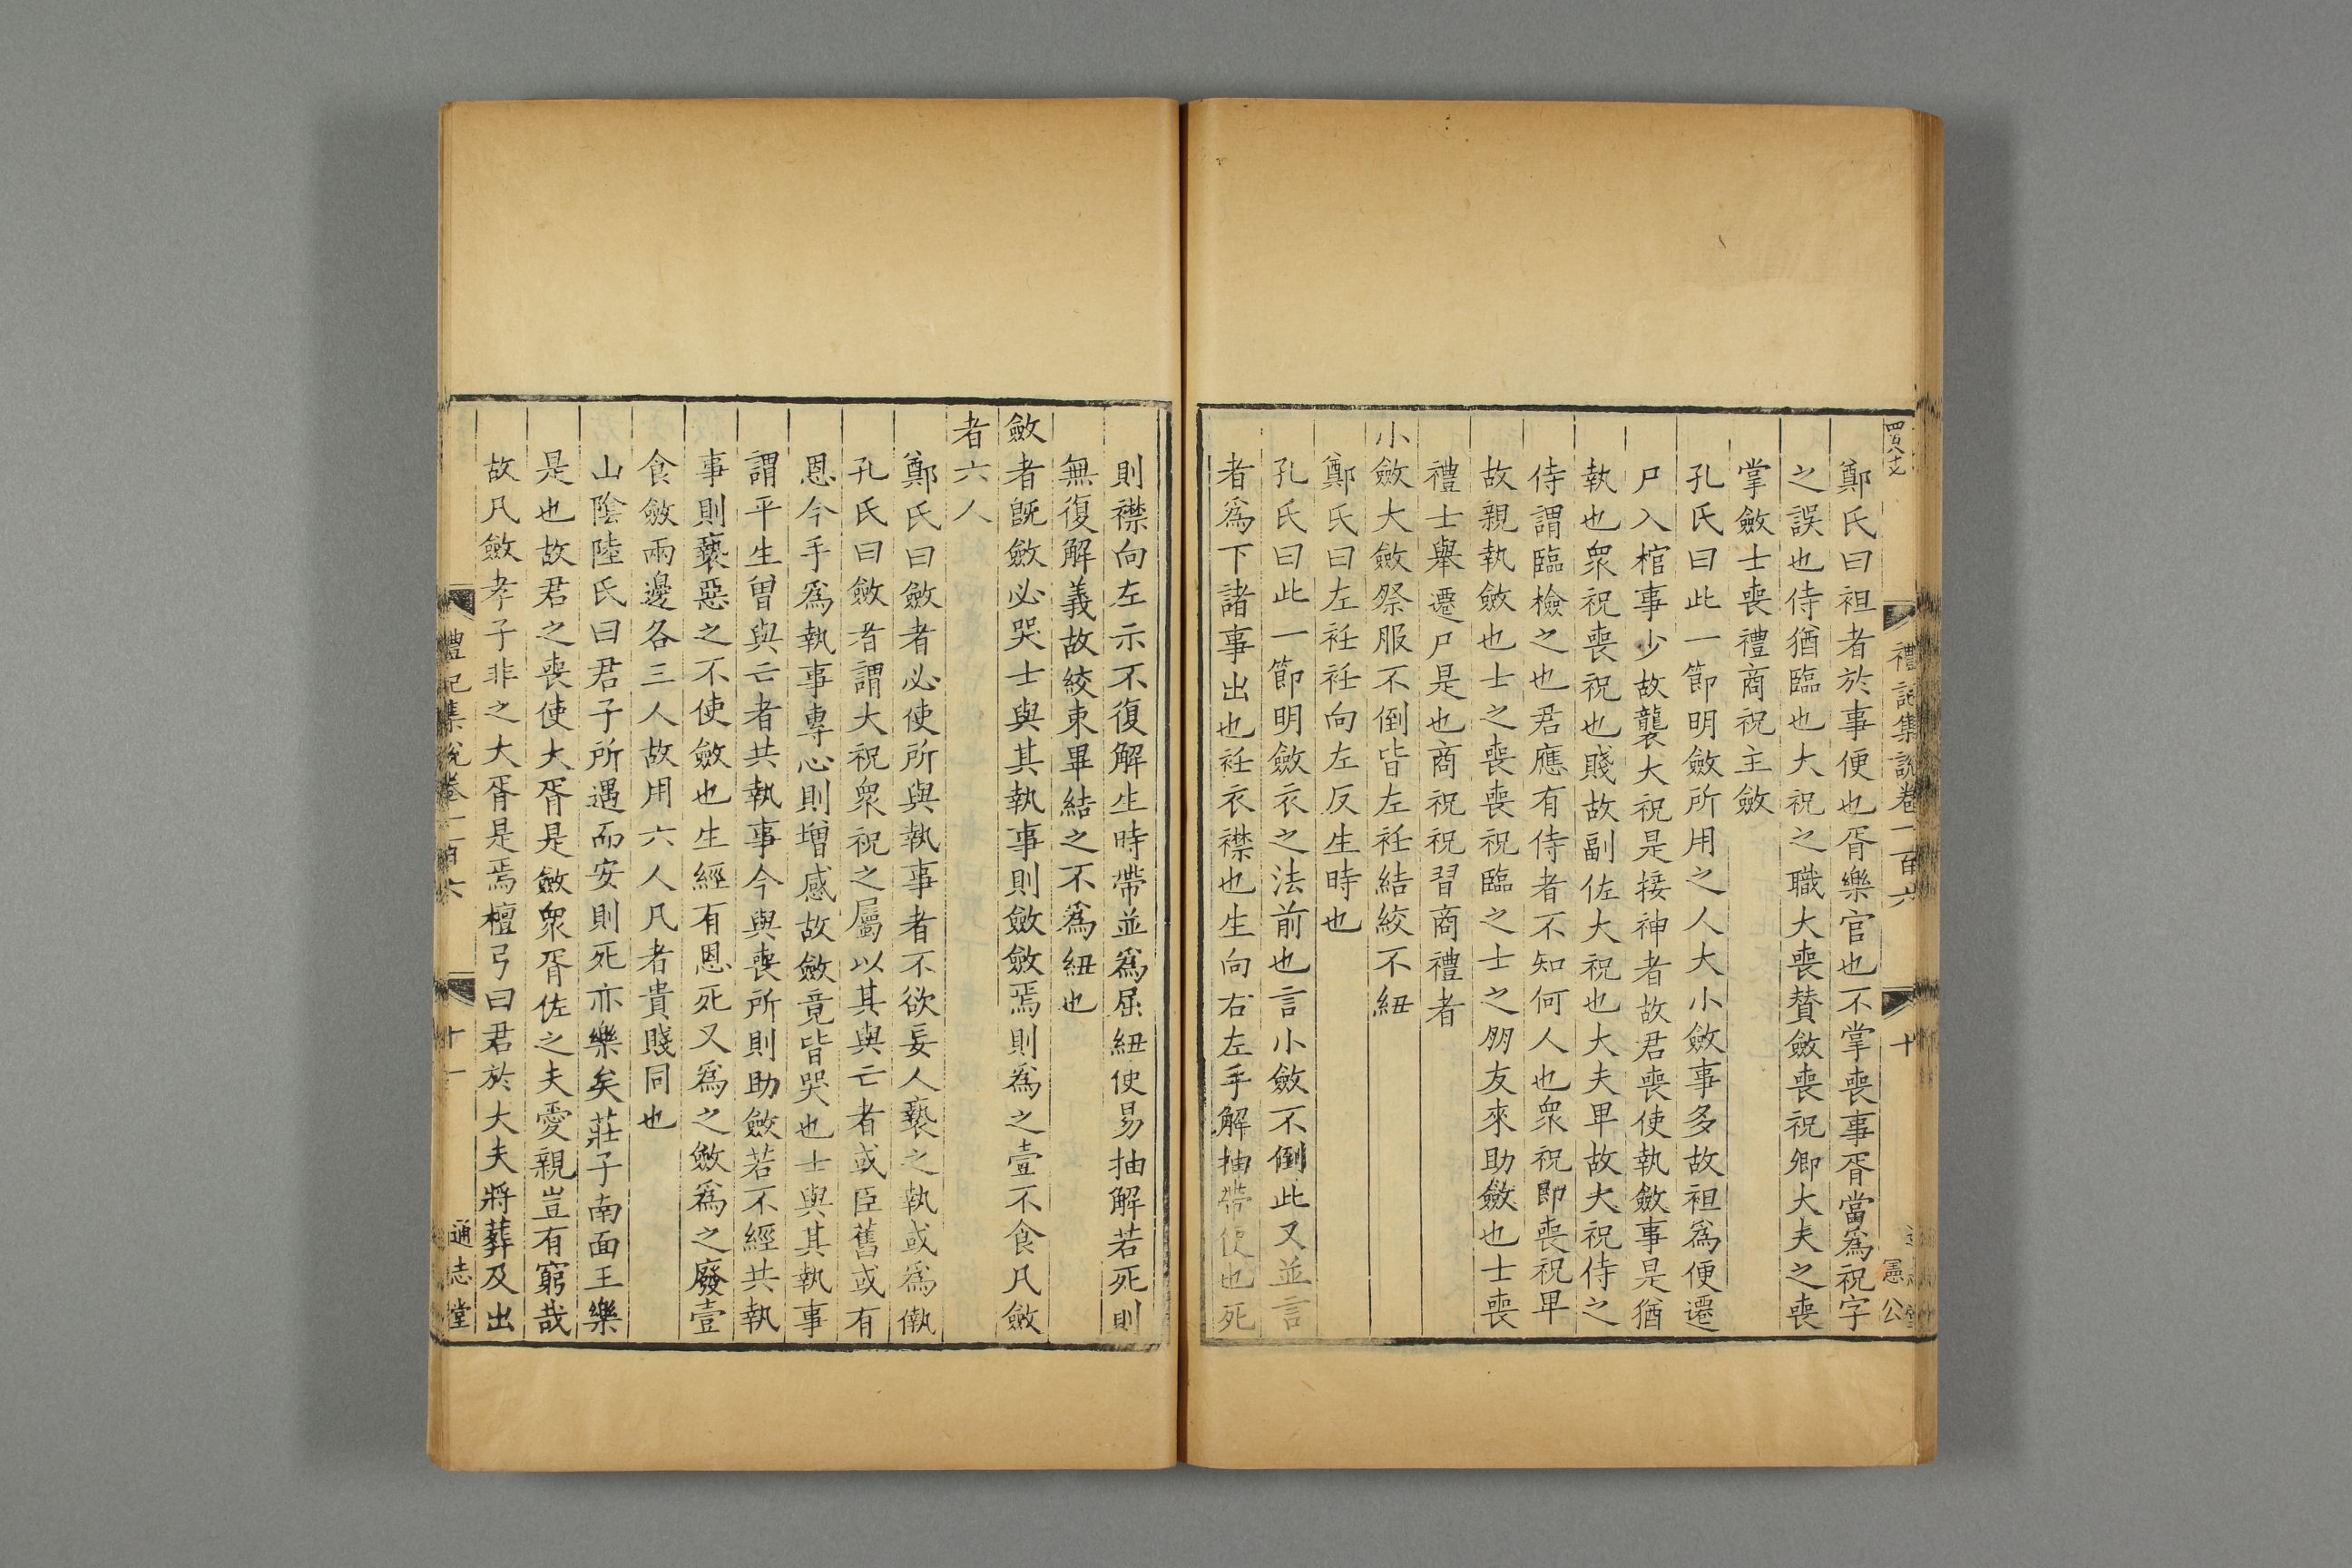 禮記集說卷一百六
十
鄭氏曰袒者於事便也胥樂官也不掌喪事胥當爲祝字
之誤也侍猶臨也大祝之職大喪贊斂喪祝卿大夫之喪
掌斂士喪禮商祝主斂
孔氏曰此一節明斂所用之人大小斂事多故袒爲便遷
尸入棺事少故襲大祝是接神者故君喪使執斂事是猶
執也衆祝喪祝也賤故副佐大祝也大夫卑故大祝侍之
侍謂臨檢之也君應有侍者不知何人也衆祝即喪祝卑
故親執斂也士之喪喪祝臨之士之朋友來助斂也士喪
禮士舉遷尸是也商祝祝習商禮者
小斂大斂祭服不倒皆左衽結絞不紐
鄭氏曰左衽衽向左反生時也
孔氏曰此一節明斂衣之法前也言小斂不倒此又並言
者爲下諸事出也衽衣襟也生向右左手解抽帶便也死
則襟向左示不復解生時帶並爲屈紐使易抽解若死則
無復解義故絞束畢結之不爲紐也
斂者旣斂必哭士與其執事則斂斂焉則爲之壹不食凡斂
者六人
鄭氏曰斂者必使所與執事者不欲妄人褻之執或爲㑺
孔氏曰斂者謂大祝衆祝之屬以其與亡者或臣舊或有
恩今手爲執事專心則增感故斂竟皆哭也士與其執事
謂平生曽與亡者共執事今與喪所則助斂若不經共執
事則褻惡之不使斂也生經有恩死又爲之斂爲之廢壹
食斂兩邊各三人故用六人凡者貴賤同也
山陰陸氏曰君子所遇而安則死亦樂矣莊子南面王樂
是也故君之喪使大胥是斂衆胥佐之夫愛親豈有窮哉
故凡斂孝子非之大胥是焉檀弓曰君於大夫將葬及出
禮記集說卷一百六
十一
通志堂